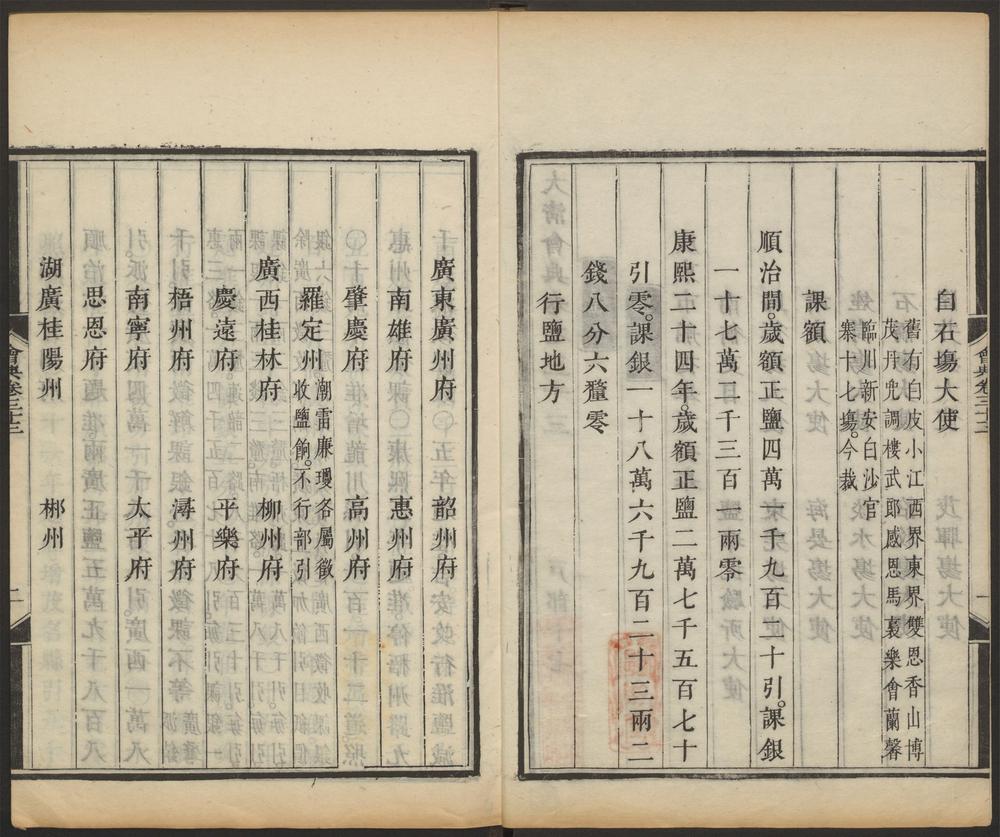 白石塲大使
舊有白皮小江西界東界雙恩香山博
茂丹兜調樓武郎感恩馬裏樂會蘭馨
臨川新安白沙官
寨十七塲。今裁
課額
順治間。歲額正鹽四萬一千九百二十引。課銀
一十七萬二千三百一兩零
康熙二十四年。歲額正鹽二萬七千五百七十
引零。課銀一十八萬六千九百二十三兩二
錢八分六釐零
行鹽地方
廣東廣州府 韶州府
南雄府 惠州府
肇慶府 高州府
羅定州 潮雷廉瓊各屬徵
收鹽餉。不行部引
廣西桂林府 柳州府
慶遠府 平樂府
梧州府 潯州府
南寧府 太平府
思恩府
湖廣桂陽州 郴州
二